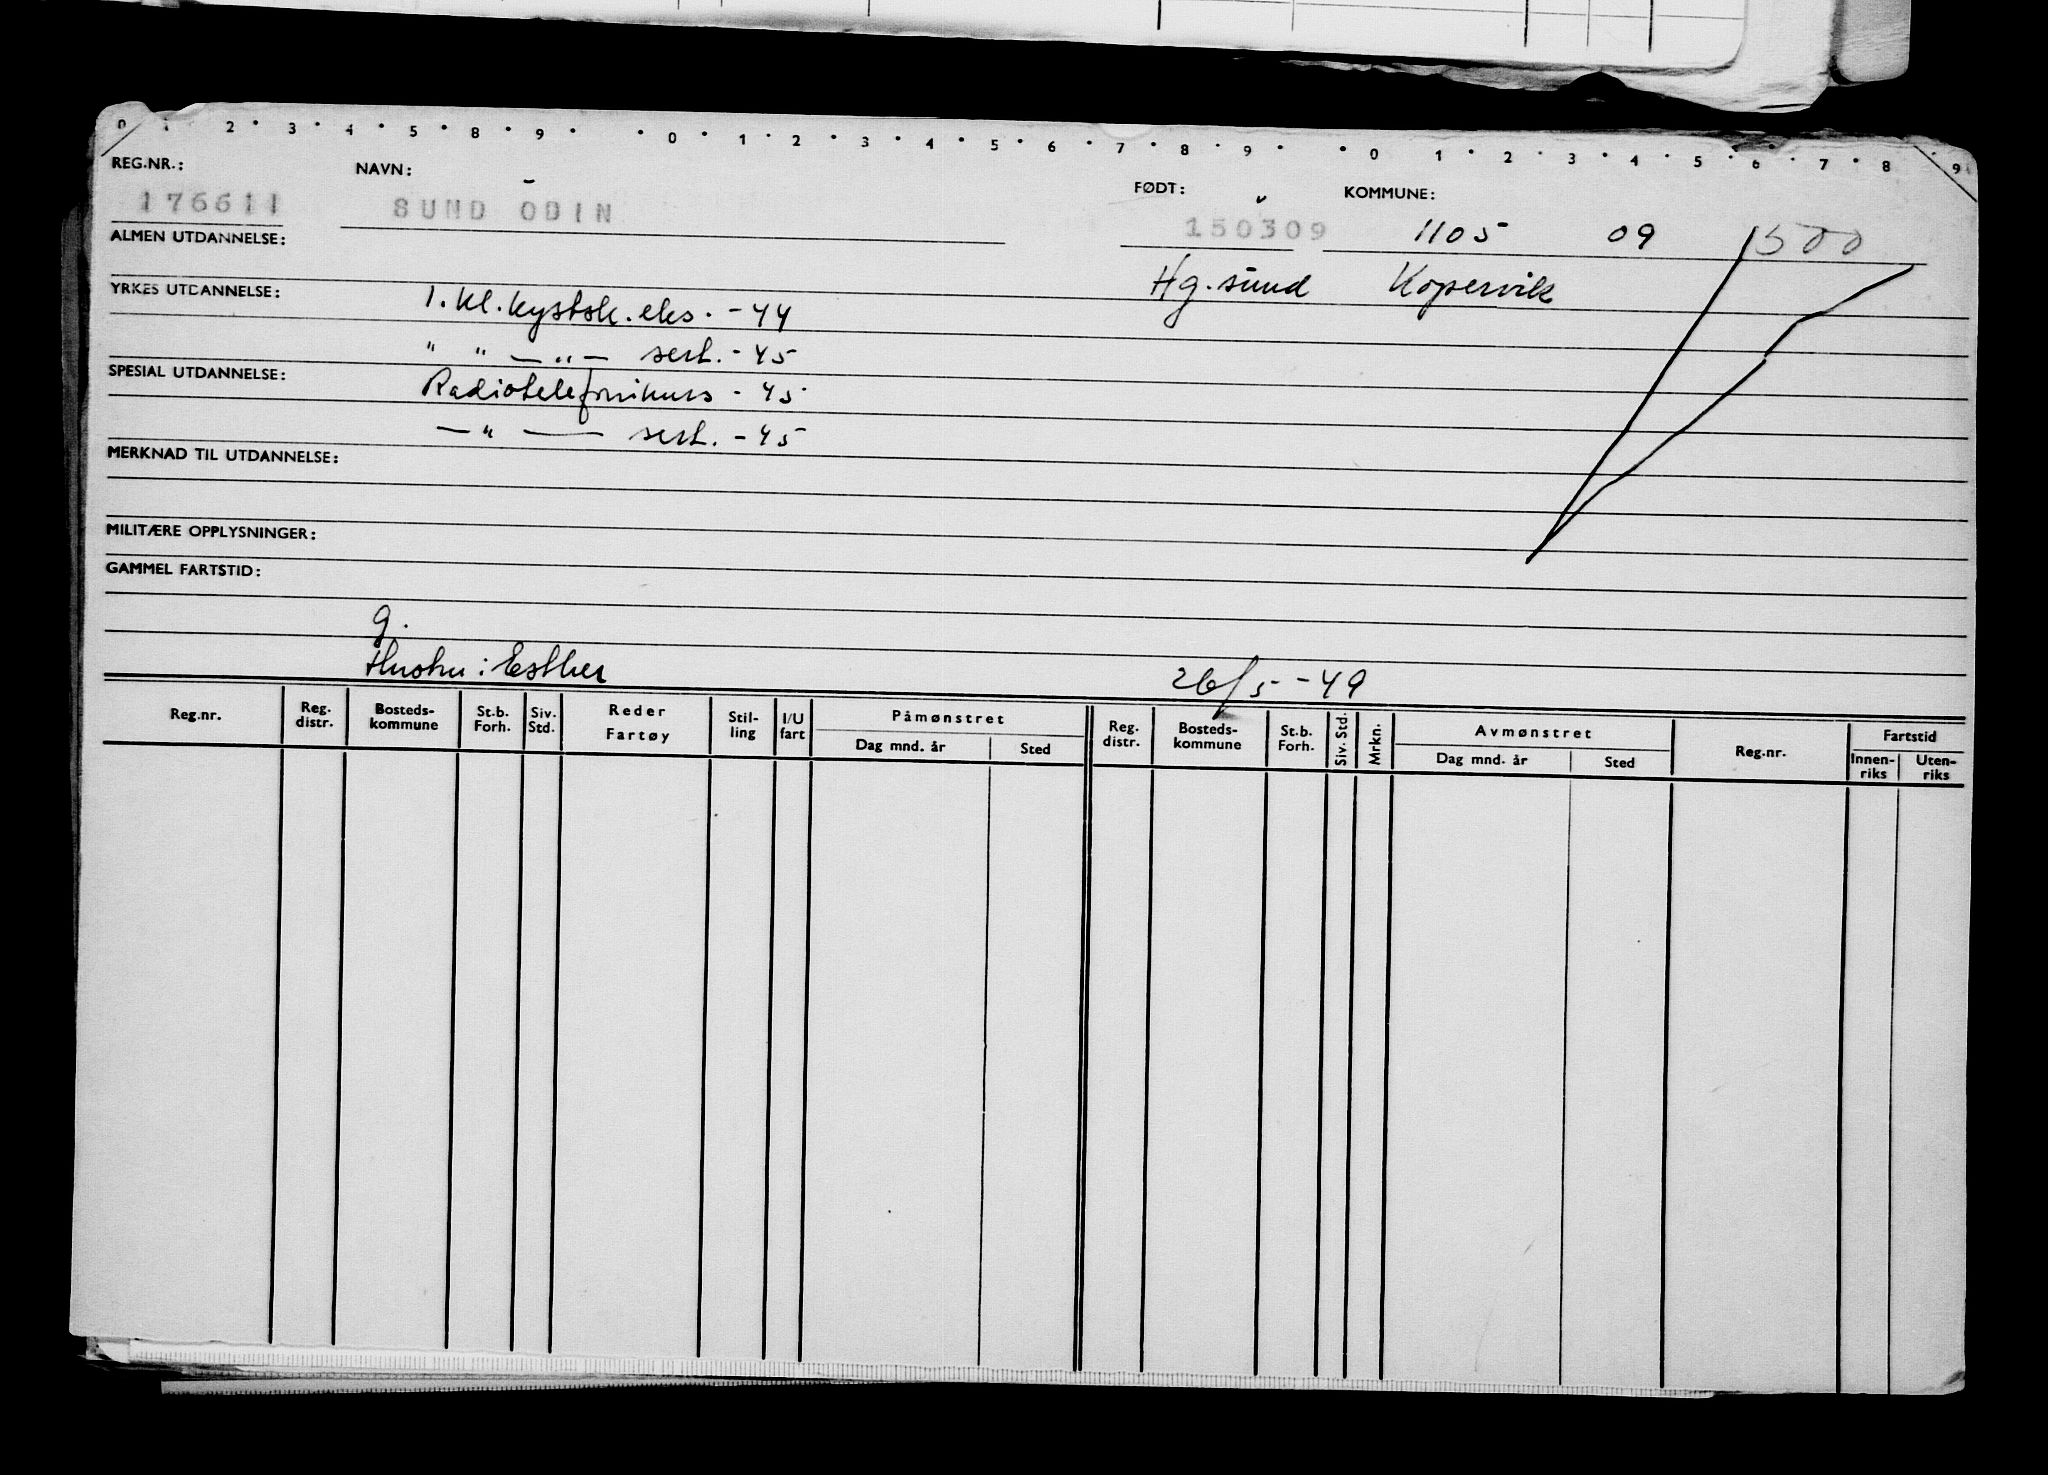 0 1 2 3 4 5 8 9 0 1 2 3 4 5 6 7 8 9 0 1 2 3 4 5 6 7 8 9
REG.NR.: NAVN: FØDT: KOMMUNE:
176611 SUND ODIN 150309 1105 09 1500
ALMEN UTDANNELSE: Hg.sund Kopervik
YRKES UTDANNELSE: 1. kl. kystsk. eks. - 44
" " — " — sert. - 45
SPESIAL UTDANNELSE: Radiotelefonikurs - 45
— " — sert. - 45
MERKNAD TIL UTDANNELSE:
MILITÆRE OPPLYSNINGER:
GAMMEL FARTSTID:
g.
Hustru: Esther 26/5 - 49
Reg.nr. Reg. distr. Bosteds- kommune St.b. Forh. Siv. Std. Reder Fartøy Stil- ling I/U fart Påmønstret Dag mnd. år Sted Reg. distr. Bosteds- kommune St.b. Forh. Siv. Std. Mrkn. Avmønstret Dag mnd. år Sted Reg.nr. Fartstid Innen- riks Uten- riks